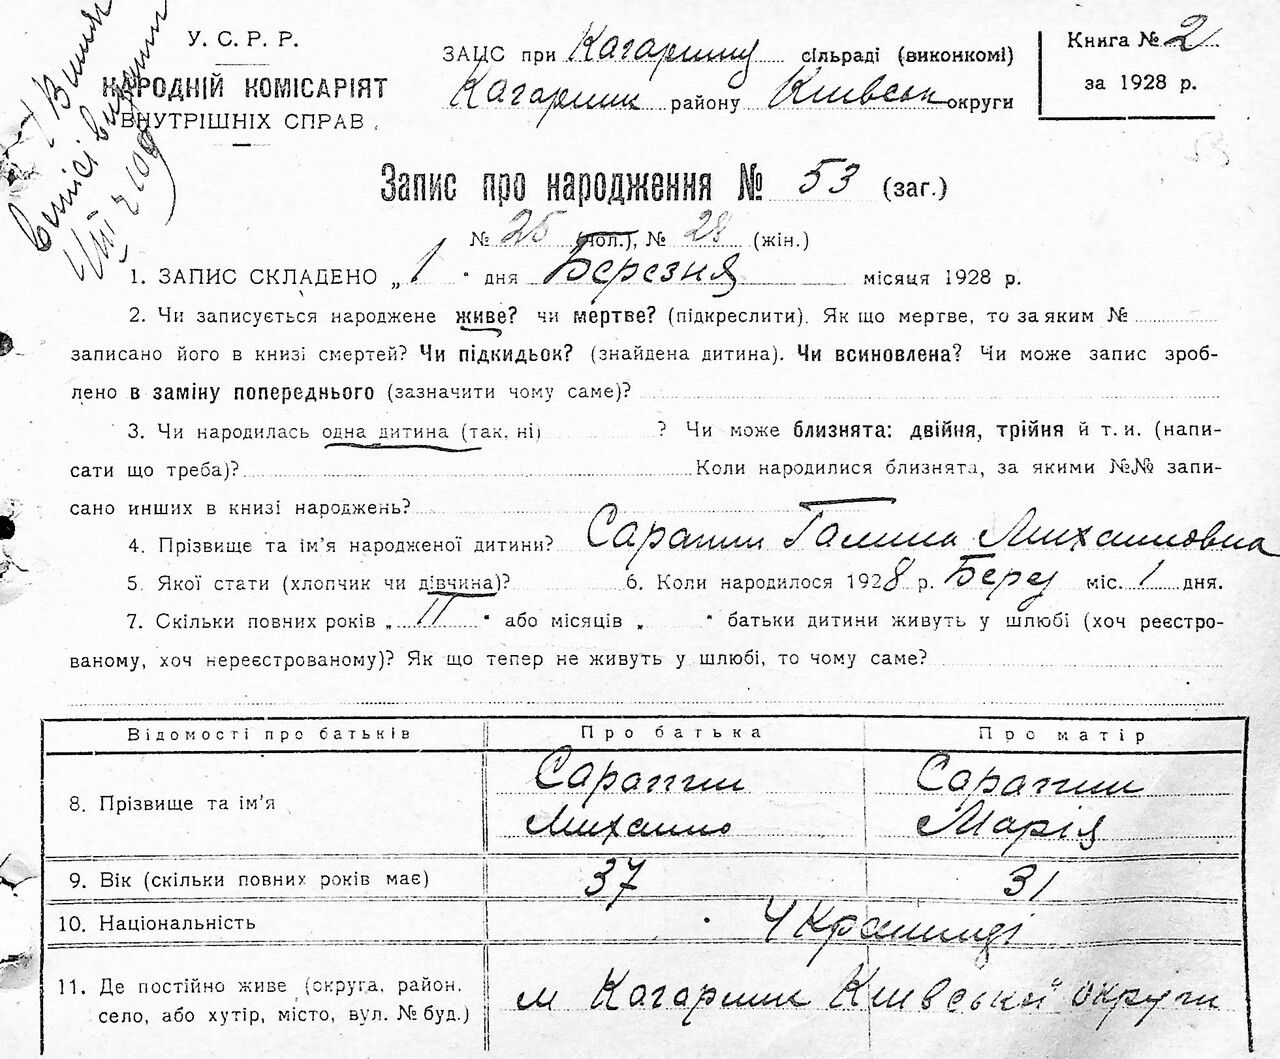 У. С. Р. Р.
НАРОДНІЙ КОМІСАРІЯТ
ВНУТРІШНІХ СПРАВ
ЗАЦС при Кагарлику сільраді (виконкомі)
Кагарлик району Київськ округи
Книга № 2
за 1928 р.
Запис про народження № 53 (заг.)
№ 25 (чол.), № 28 (жін.)
1. ЗАПИС СКЛАДЕНО „1" дня Березня місяця 1928 р.
2. Чи записується народжене живе? чи мертве? (підкреслити). Як що мертве, то за яким №
записано його в книзі смертей? Чи підкидьок? (знайдена дитина). Чи всиновлена? Чи може запис зроб-
лено в заміну попереднього (зазначити чому саме)?
3. Чи народилась одна дитина (так, ні) ? Чи може близнята: двійня, трійня й т. и. (напи-
сати що треба)? Коли народилися близнята, за якими №№ запи-
сано инших в книзі народжень?
4. Прізвище та ім'я народженої дитини? Сарапин Галина Михайловна
5. Якої стати (хлопчик чи дівчина)? 6. Коли народилося 1928 р. Берез міс. 1 дня.
7. Скільки повних років „11" або місяців „ " батьки дитини живуть у шлюбі (хоч реєстро-
ваному, хоч нереєстрованому)? Як що тепер не живуть у шлюбі, то чому саме?
Відомості про батьків Про батька Про матір
8. Прізвище та ім'я Сарапин Михайло Сарапин Марія
9. Вік (скільки повних років має) 37 31
10. Національність Українці
11. Де постійно живе (округа, район, село, або хутір, місто, вул. № буд.) м Кагарлик Київської округи